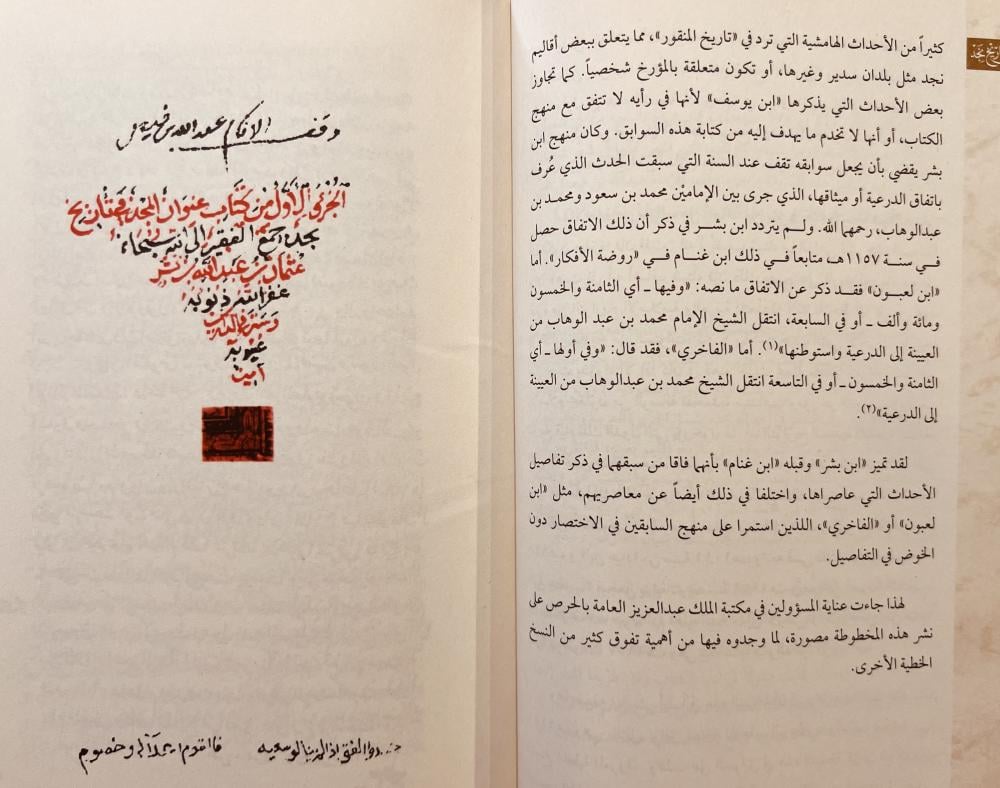 تاريخ نجد
كثيراً من الأحداث الهامشية التي ترد في «تاريخ المنقور»، مما يتعلق ببعض أقاليم
نجد مثل بلدان سدير وغيرها، أو تكون متعلقة بالمؤرخ شخصياً. كما تجاوز
بعض الأحداث التي يذكرها «ابن يوسف» لأنها في رأيه لا تتفق مع منهج
الكتاب، أو أنها لا تخدم ما يهدف إليه من كتابة هذه السوابق. وكان منهج ابن
بشر يقضي بأن يجعل سوابقه تقف عند السنة التي سبقت الحدث الذي عُرف
باتفاق الدرعية أو ميثاقها، الذي جرى بين الإمامیْن محمد بن سعود ومحمد بن
عبدالوهاب، رحمهما الله. ولم يتردد ابن بشر في ذكر أن ذلك الاتفاق حصل
في سنة ١١٥٧هـ، متابعاً في ذلك ابن غنام في «روضة الأفكار». أما
«ابن لعبون» فقد ذكر عن الاتفاق ما نصه: «وفيها ـ أي الثامنة والخمسون
ومائة وألف ـ أو في السابعة، انتقل الشيخ الإمام محمد بن عبد الوهاب من
العيينة إلى الدرعية واستوطنها»(١). أما «الفاخري»، فقد قال: «وفي أولها ـ أي
الثامنة والخمسون ـ أو في التاسعة انتقل الشيخ محمد بن عبدالوهاب من العيينة
إلى الدرعية»(٢).
لقد تميز «ابن بشر» وقبله «ابن غنام» بأنهما فاقا من سبقهما في ذكر تفاصيل
الأحداث التي عاصراها، واختلفا في ذلك أيضاً عن معاصريهم، مثل «ابن
لعبون» أو «الفاخري»، اللذين استمرا على منهج السابقين في الاختصار دون
الخوض في التفاصيل.
لهذا جاءت عناية المسؤولين في مكتبة الملك عبدالعزيز العامة بالحرص على
نشر هذه المخطوطة مصورة، لما وجدوه فيها من أهمية تفوق كثير من النسخ
الخطية الأخرى.
وقف الإمام عبد الله بن فيصل
الجزء الأول من كتاب عنوان المجد في تاريخ
نجد جمع الفقير إلى الله سبحانه
عثمان بن عبد الله بن بشر
غفر الله ذنوبه
وستر في الدارين
عيوبه
آمين